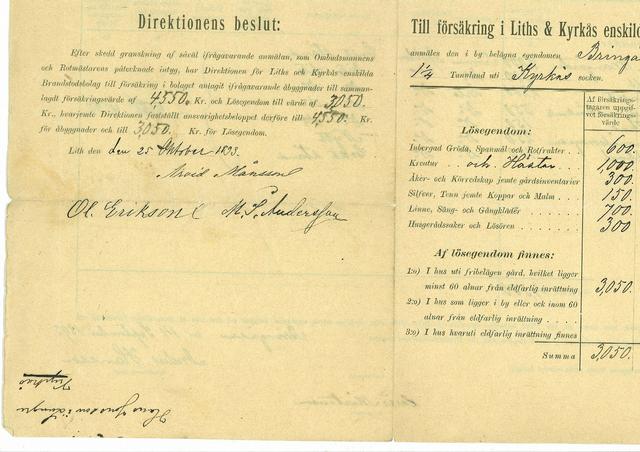 Direktionens beslut:
Efter skedd granskning af såväl ifrågavarande anmälan, som Ombudsmannens
och Rotmästarens påtecknade intyg, har Direktionen för Liths och Kyrkås enskilda
Brandstodsbolag till försäkring i bolaget antagit ifrågavarande åbyggnader till samman-
lagdt försäkringsvärde af 4550. Kr. och Lösegendom till värde af 3050.
Kr., hvarjemte Direktionen fastställt ansvarighetsbeloppet derföre till 4550. Kr.
för åbyggnader och till 3,050. Kr. för Lösegendom.
Lith den 25 Oktober 1893.
Ol. Erikson M. P. Andersson
Kyrkås
Till försäkring i Liths & Kyrkås enskild
anmäles den i by belägna egendomen Bringå
1 1/4 Tunnland uti Kyrkås socken.
Af försäkrings-
tagaren uppgif-
vet försäkrings-
värde
Lösegendom:
Inbergad Gröda, Spanmål och Rotfrukter . . 600.
Kreatur och Hästar 1,000.
Åker- och Körredskap jemte gårdsinventarier 300.
Silfver, Tenn jemte Koppar och Malm . . 150.
Linne, Säng- och Gångkläder 700.
Husgerådssaker och Lösören 300
Af lösegendom finnes:
1:o) I hus uti fribelägen gård, hvilket ligger
minst 60 alnar från eldfarlig inrättning 3,050.
2:o) I hus som ligger i by eller och inom 60
alnar från eldfarlig inrättning . . . .
3:o) I hus hvaruti eldfarlig inrättning finnes
Summa 3,050.